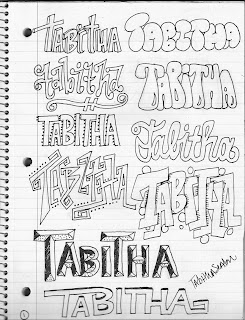 TABITHA TABITHA
tabitha TABITHA
TABITHA Tabitha
TABITHA TABITHA
Tabitha
TABITHA
TABITHA